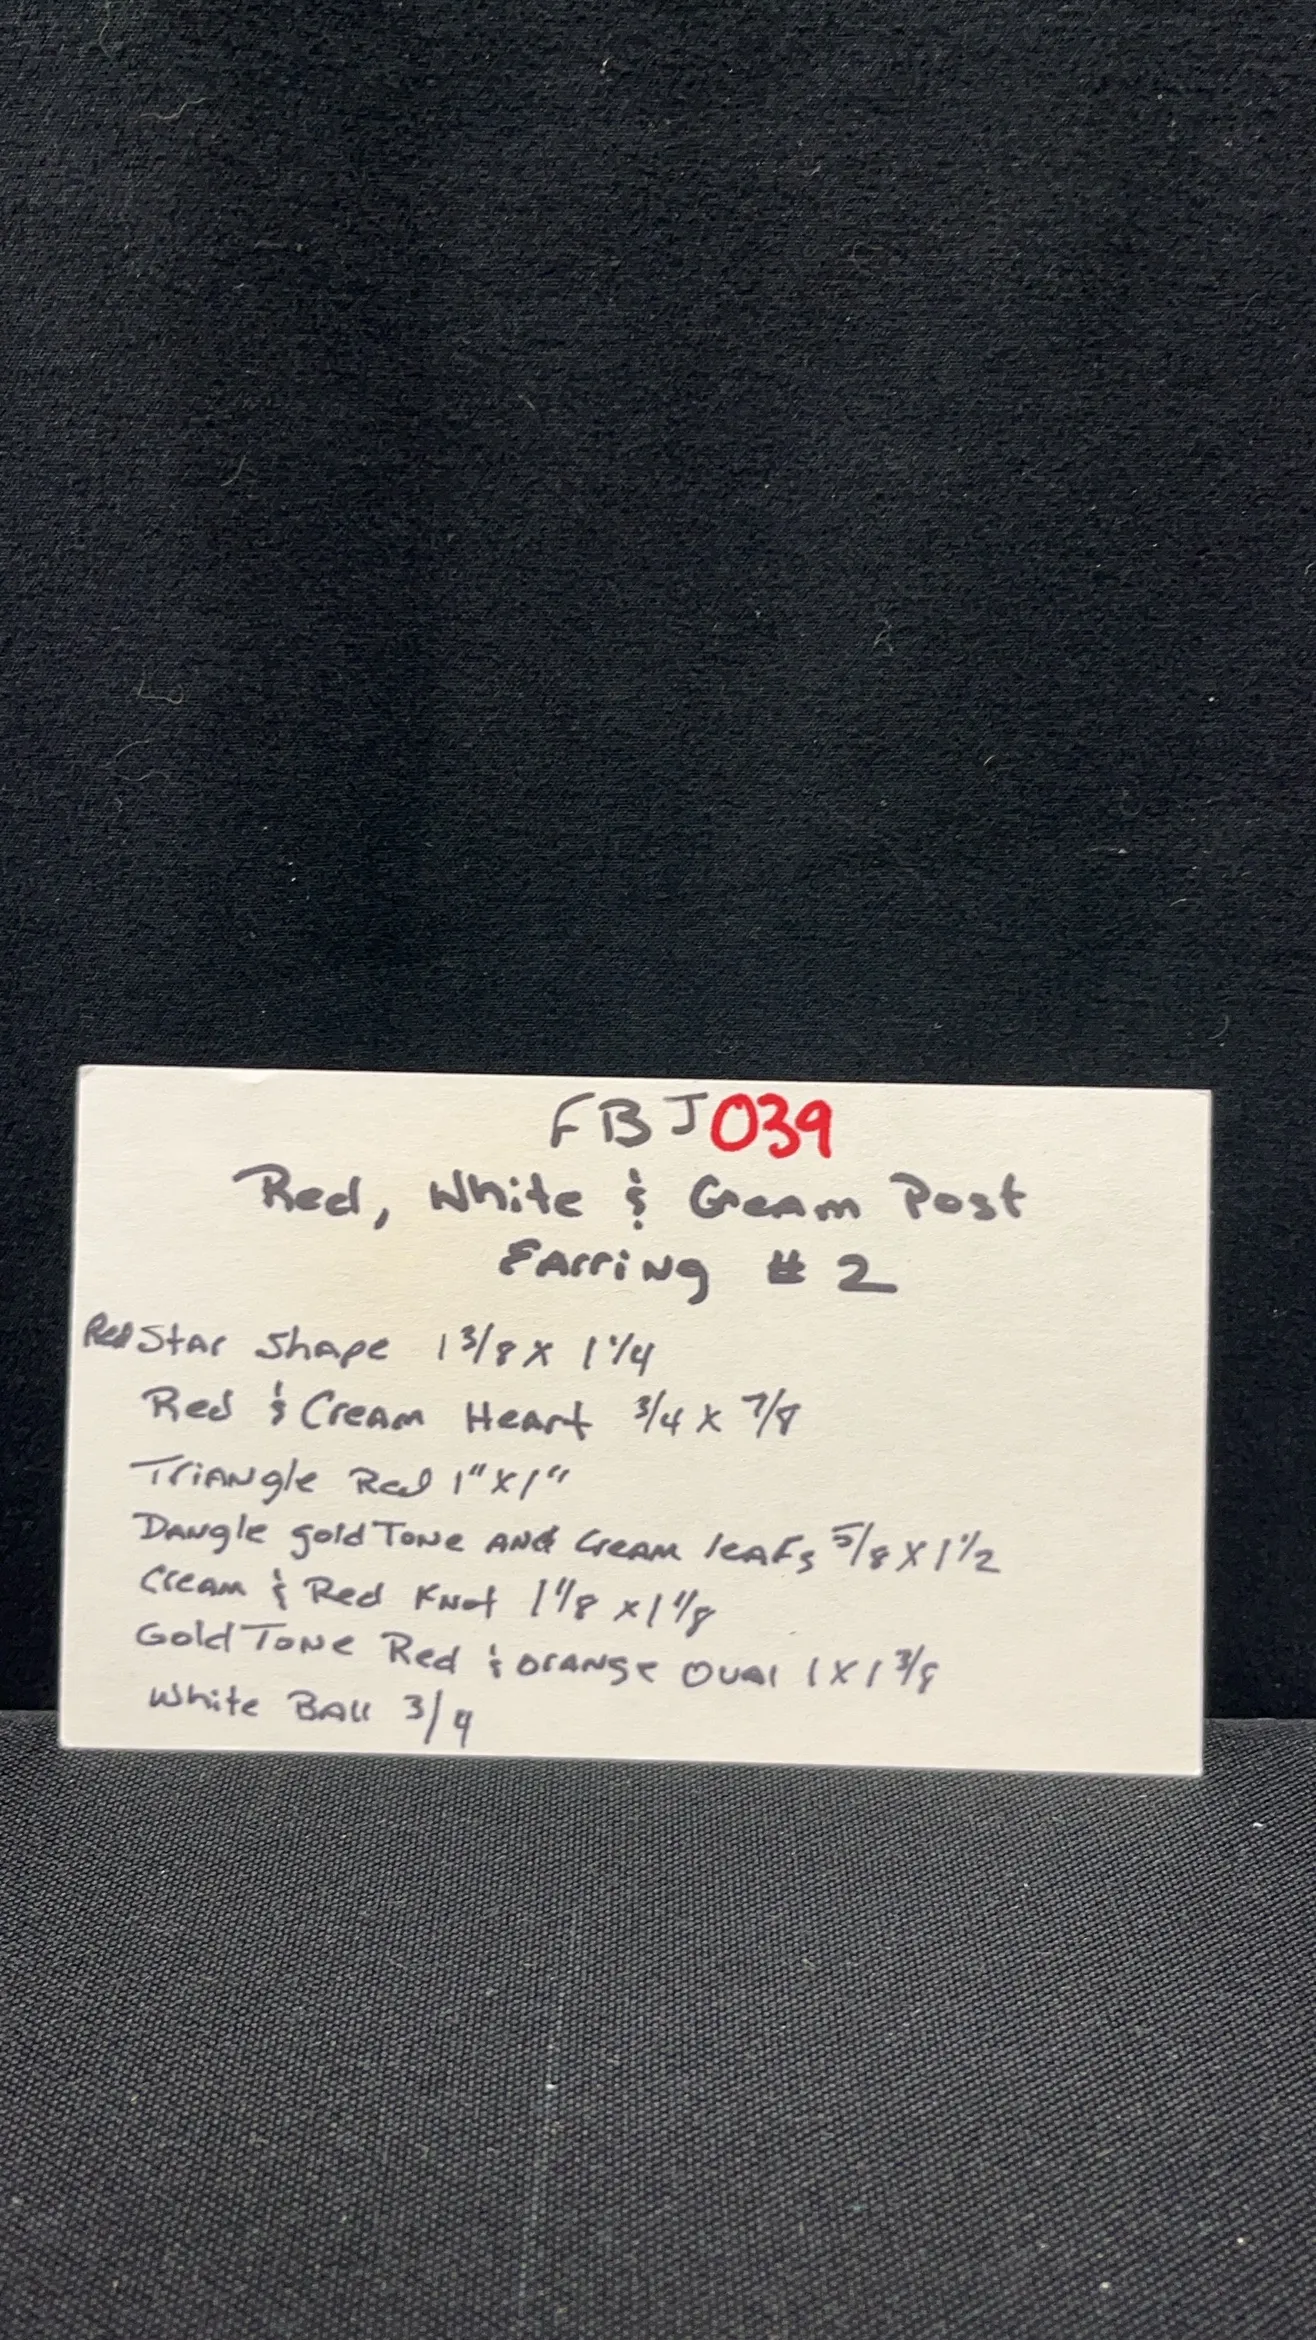 FBJ039
Red, White & Cream Post
Earring #2
Red Star Shape 1 3/8 x 1 1/4
Red & Cream Heart 3/4 x 7/8
Triangle Red 1" x 1"
Dangle gold Tone and Cream leafs 5/8 x 1 1/2
Cream & Red Knot 1 1/8 x 1 1/8
Gold Tone Red & orange oval 1 x 1 3/8
White Ball 3/4